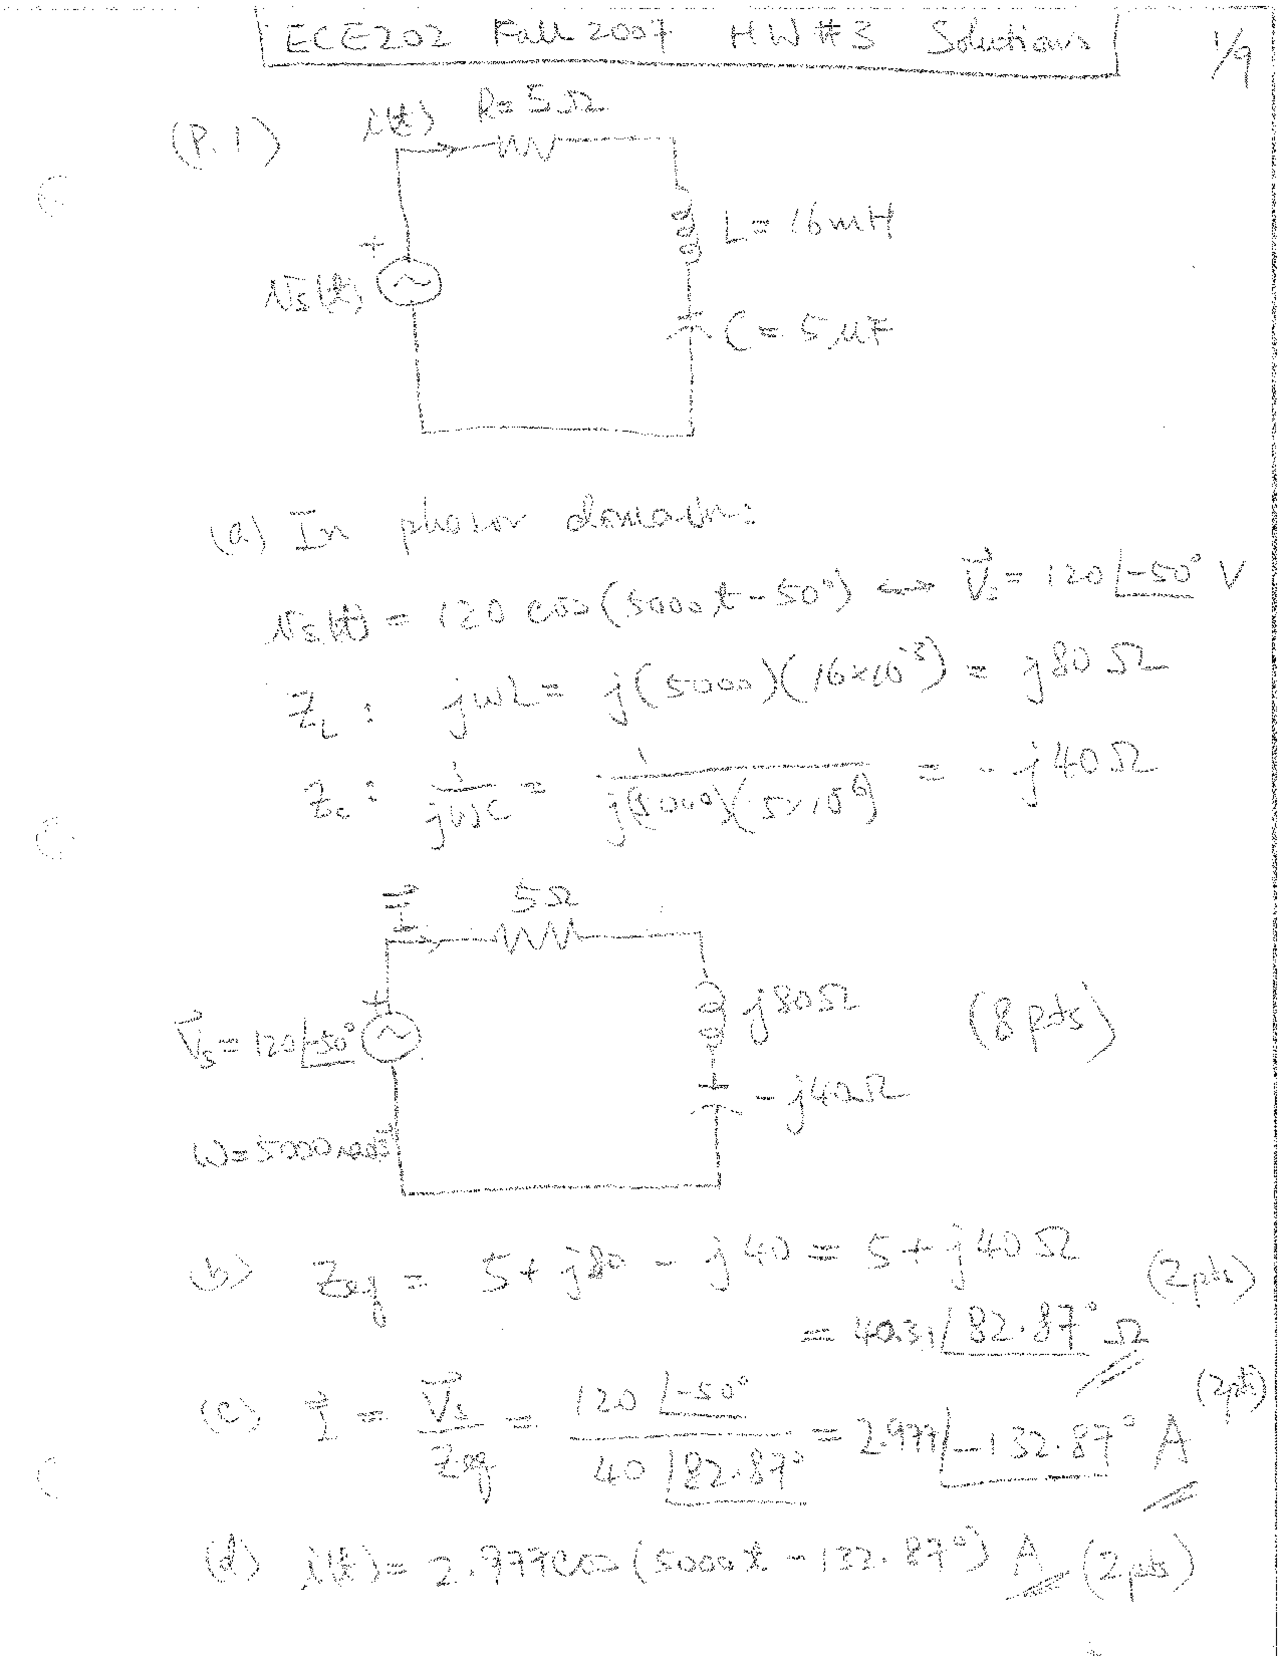 ECE202 Fall 2007 HW #3 Solutions 1/9
(P.1) i(t) R = 5Ω
L = 16mH
+
Vs(t)
C = 5μF
(a) In phasor domain:
Vs(t) = 120 cos(5000t - 50°) ↔ V⃗s = 120∠-50° V
Z_L : jωL = j(5000)(16×10⁻³) = j80Ω
Z_C : 1/jωC = 1/j(5000)(5×10⁻⁶) = -j40Ω
I⃗ 5Ω
+
j80Ω (8 pts)
V⃗s = 120∠-50°
-j40Ω
ω = 5000 rad/s
(b) Zeq = 5 + j80 - j40 = 5 + j40Ω (2pts)
= 40.31∠82.87° Ω
(c) I⃗ = V⃗s/Zeq = 120∠-50° / 40∠82.87° = 2.977∠-132.87° A (2pts)
(d) i(t) = 2.977cos(5000t - 132.87°) A (2pts)